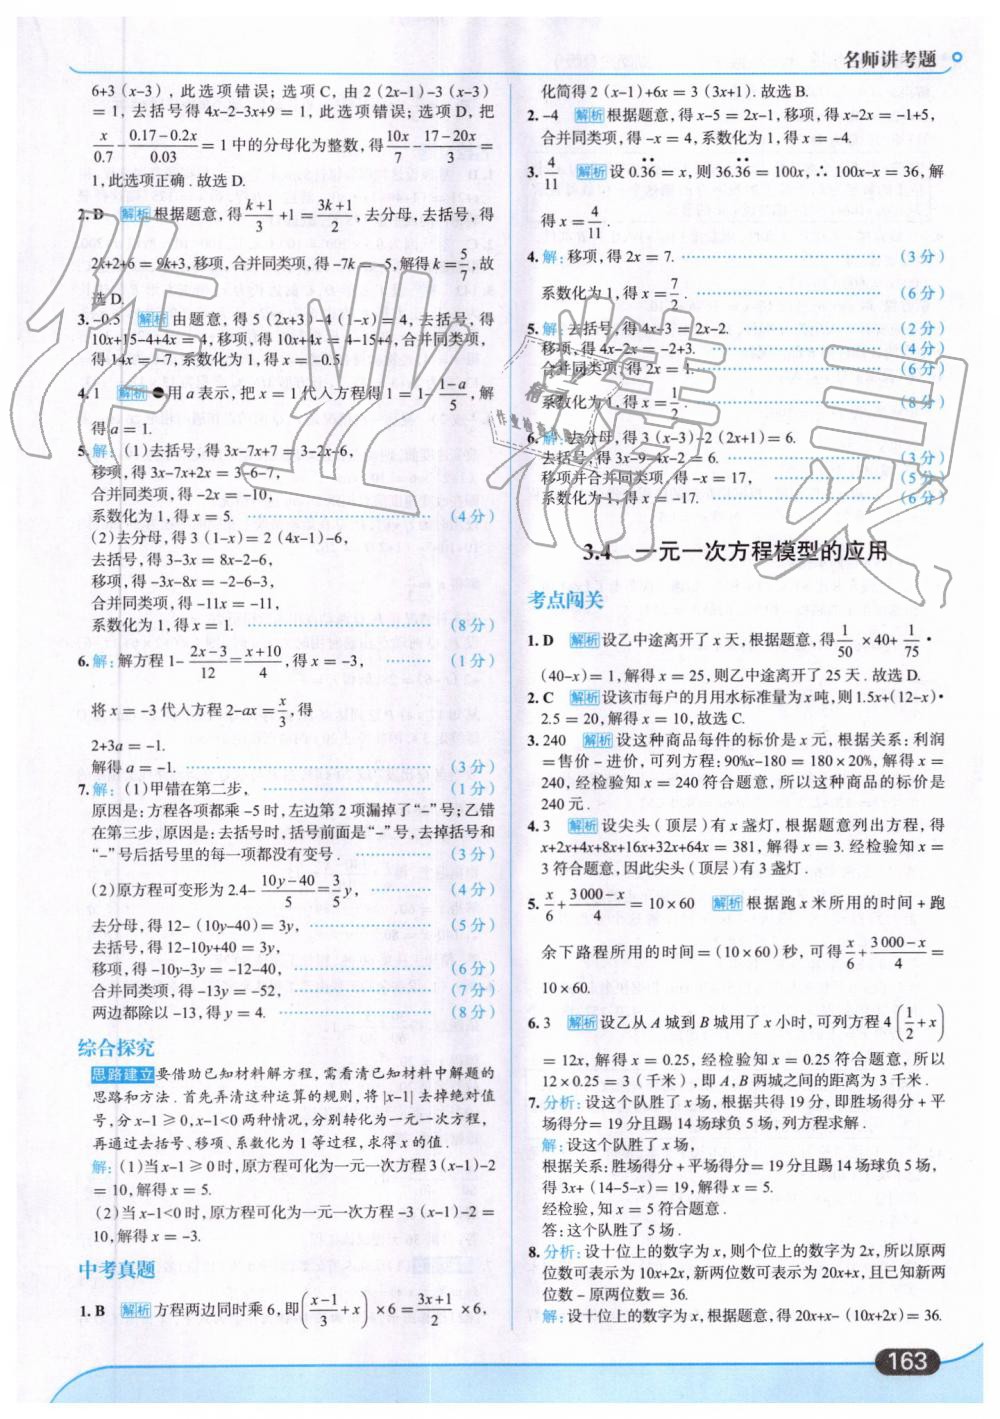 名师讲考题
6+3(x-3)，此选项错误；选项C，由2(2x-1)-3(x-3)
=1，去括号得4x-2-3x+9=1，此选项错误；选项D，把
x/0.7-(0.17-0.2x)/0.03=1中的分母化为整数，得10x/7-(17-20x)/3=
1，此选项正确．故选D.
2. D 解析 根据题意，得(k+1)/3+1=(3k+1)/2，去分母，去括号，得
2k+2+6=9k+3，移项，合并同类项，得-7k=-5，解得k=5/7，故
选D.
3. -0.5 解析 由题意，得5(2x+3)-4(1-x)=4，去括号，得
10x+15-4+4x=4，移项，得10x+4x=4-15+4，合并同类项，
得14x=-7，系数化为1，得x=-0.5.
4. 1 解析 ●用a表示，把x=1代入方程得1=1-(1-a)/5，解
得a=1.
5. 解：(1)去括号，得3x-7x+7=3-2x-6，
移项，得3x-7x+2x=3-6-7，
合并同类项，得-2x=-10，
系数化为1，得x=5. ……(4分)
(2)去分母，得3(1-x)=2(4x-1)-6，
去括号，得3-3x=8x-2-6，
移项，得-3x-8x=-2-6-3，
合并同类项，得-11x=-11，
系数化为1，得x=1. ……(8分)
6. 解：解方程1-(2x-3)/12=(x+10)/4，得x=-3， ……(1分)
将x=-3代入方程2-ax=x/3，得
2+3a=-1.
解得a=-1. ……(3分)
7. 解：(1)甲错在第二步， ……(1分)
原因是：方程各项都乘-5时，左边第2项漏掉了“-”号；乙错
在第三步，原因是：去括号时，括号前面是“-”号，去掉括号和
“-”号后括号里的每一项都没有变号． ……(3分)
(2)原方程可变形为2.4-(10y-40)/5=3/5y， ……(4分)
去分母，得12-(10y-40)=3y， ……(5分)
去括号，得12-10y+40=3y，
移项，得-10y-3y=-12-40， ……(6分)
合并同类项，得-13y=-52， ……(7分)
两边都除以-13，得y=4. ……(8分)
综合探究
思路建立 要借助已知材料解方程，需看清已知材料中解题的
思路和方法．首先弄清这种运算的规则，将|x-1|去掉绝对值
号，分x-1≥0，x-1<0两种情况，分别转化为一元一次方程，
再通过去括号、移项、系数化为1等过程，求得x的值．
解：(1)当x-1≥0时，原方程可化为一元一次方程3(x-1)-2
=10，解得x=5.
(2)当x-1<0时，原方程可化为一元一次方程-3(x-1)-2=
10，解得x=-3.
中考真题
1. B 解析 方程两边同时乘6，即((x-1)/3+x)×6=(3x+1)/2×6，
化简得2(x-1)+6x=3(3x+1)．故选B.
2. -4 解析 根据题意，得x-5=2x-1，移项，得x-2x=-1+5，
合并同类项，得-x=4，系数化为1，得x=-4.
3. 4/11 解析 设0.3̇6̇=x，则36.3̇6̇=100x，∴100x-x=36，解
得x=4/11.
4. 解：移项，得2x=7. ……(3分)
系数化为1，得x=7/2. ……(6分)
5. 解：去括号，得4x-3=2x-2. ……(2分)
移项，得4x-2x=-2+3. ……(4分)
合并同类项，得2x=1. ……(6分)
系数化为1，得x=1/2. ……(8分)
6. 解：去分母，得3(x-3)-2(2x+1)=6.
去括号，得3x-9-4x-2=6. ……(3分)
移项并合并同类项，得-x=17， ……(5分)
系数化为1，得x=-17. ……(6分)
3.4 一元一次方程模型的应用
考点闯关
1. D 解析 设乙中途离开了x天，根据题意，得1/50×40+1/75·
(40-x)=1，解得x=25，则乙中途离开了25天．故选D.
2. C 解析 设该市每户的月用水标准量为x吨，则1.5x+(12-x)·
2.5=20，解得x=10，故选C.
3. 240 解析 设这种商品每件的标价是x元，根据关系：利润
=售价-进价，可列方程：90%x-180=180×20%，解得x=
240，经检验知x=240符合题意，所以这种商品的标价是
240元．
4. 3 解析 设尖头（顶层）有x盏灯，根据题意列出方程，得
x+2x+4x+8x+16x+32x+64x=381，解得x=3. 经检验知x=
3符合题意，因此尖头（顶层）有3盏灯．
5. x/6+(3 000-x)/4=10×60 解析 根据跑x米所用的时间+跑
余下路程所用的时间=(10×60)秒，可得x/6+(3 000-x)/4=
10×60.
6. 3 解析 设乙从A城到B城用了x小时，可列方程4(1/2+x)
=12x，解得x=0.25，经检验知x=0.25符合题意，所以
12×0.25=3（千米），即A，B两城之间的距离为3千米．
7. 分析：设这个队胜了x场，根据共得19分，即胜场得分+平
场得分=19分且踢14场球负5场，列方程求解．
解：设这个队胜了x场，
根据关系：胜场得分+平场得分=19分且踢14场球负5场，
得3x+(14-5-x)=19，解得x=5.
经检验，知x=5符合题意．
答：这个队胜了5场．
8. 分析：设十位上的数字为x，则个位上的数字为2x，所以原两
位数可表示为10x+2x，新两位数可表示为20x+x，且已知新两
位数-原两位数=36.
解：设十位上的数字为x，根据题意，得20x+x-(10x+2x)=36.
163
作业精灵